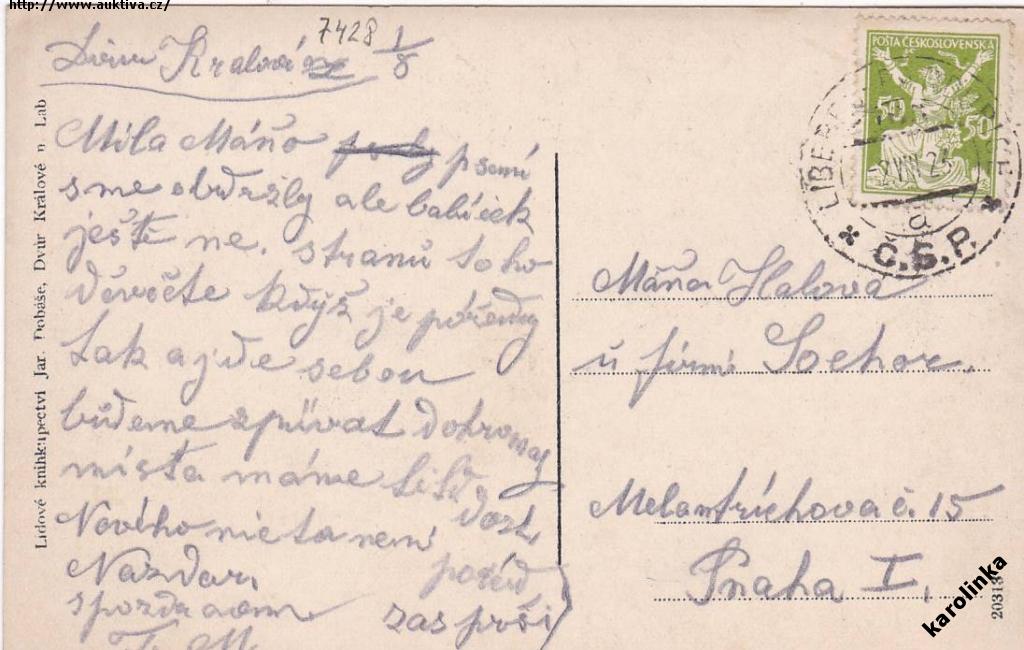 http://www.auktiva.cz/
7428
Králové 1/8
Milá Máňo psení
sme obdržely ale balíček
ještě ne. stranů toho
děvčete když je pořádny
tak ajde sebou
budeme zpívat dohromady
místa máme dost,
Nového nic tu není
Nazdar, pořád
zas prší
Lidové knihkupectví Jar. Dobáše, Dvůr Králové n. Lab
POŠTA ČESKOSLOVENSKÁ
50 50
2 VIII 23
* Č.S.P. *
Máňa Halova
u firmi Sochor.
Melantrichova č. 15
Praha I.
20313
karolinka